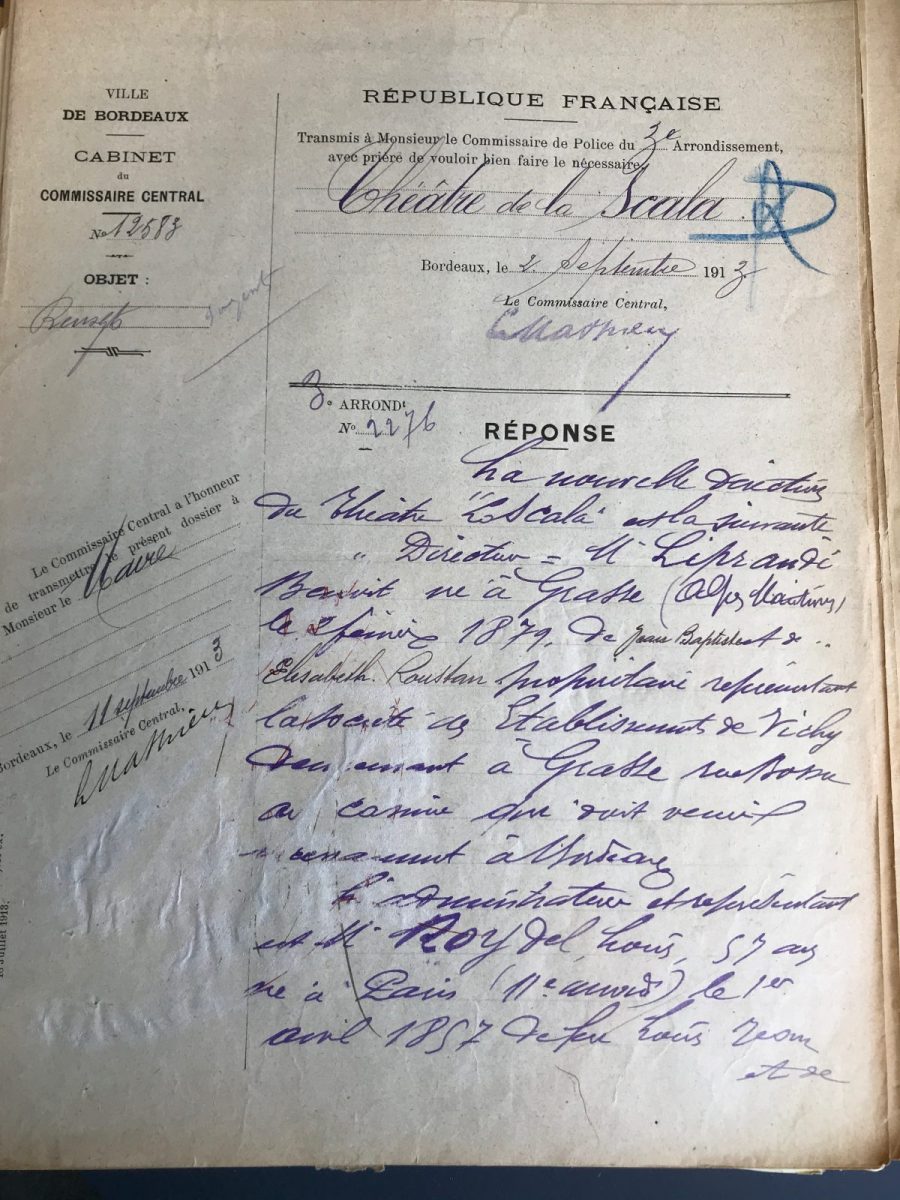 VILLE
DE BORDEAUX
CABINET
du
COMMISSAIRE CENTRAL
No 12583
OBJET :
Renseigts
urgent
RÉPUBLIQUE FRANÇAISE
Transmis à Monsieur le Commissaire de Police du 3e Arrondissement,
avec prière de vouloir bien faire le nécessaire
Théâtre de la Scala.
Bordeaux, le 2 Septembre 1913
Le Commissaire Central,
3e ARRONDt
No 2276
RÉPONSE
La nouvelle direction
du Théâtre "La Scala" est la suivante
" Directeur = Mr Liprandi
Benoit né à Grasse (Alpes Maritimes)
le 2 février 1879, de Jean Baptiste et de ..
Elisabeth Roustan propriétaire représentant
la société des Etablissements de Vichy
demeurant à Grasse
au casino qui doit venir
à Bordeaux
L'administrateur et représentant
est Mr ROY Louis, 57 ans
né à Paris (11e arrondt) le 1er
avril 1857 de feu Louis
et de
Le Commissaire Central a l'honneur
de transmettre le présent dossier à
Monsieur le Maire
Bordeaux, le 11 septembre 1913
Le Commissaire Central,
Juillet 1913.